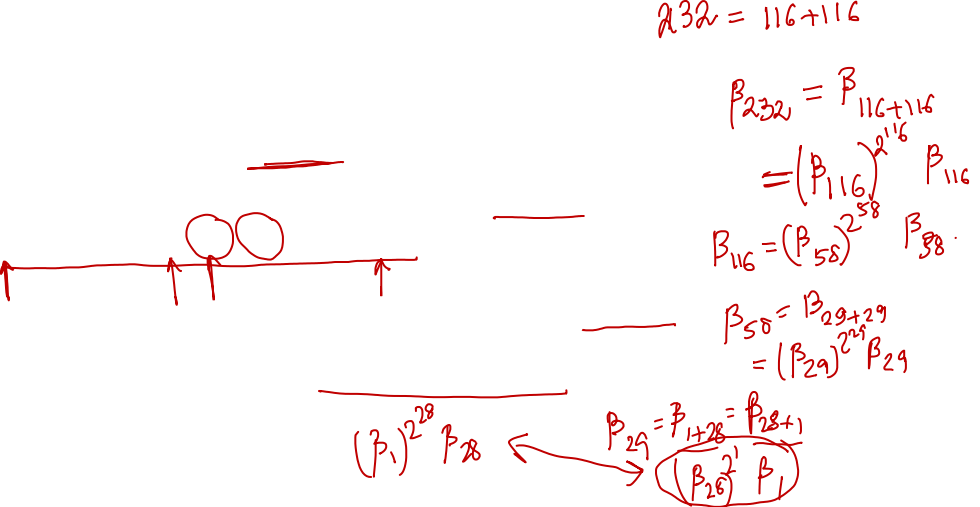 232 = 116+116
β₂₃₂ = β₁₁₆₊₁₁₆
= (β₁₁₆)^2^116 β₁₁₆
β₁₁₆ = (β₅₈)^2^58 β₅₈.
β₅₈ = β₂₉₊₂₉
= (β₂₉)^2^29 β₂₉
β₂₉ = β₁₊₂₈ = β₂₈₊₁
(β₁)^2^28 β₂₈
(β₂₈)^2^1 β₁